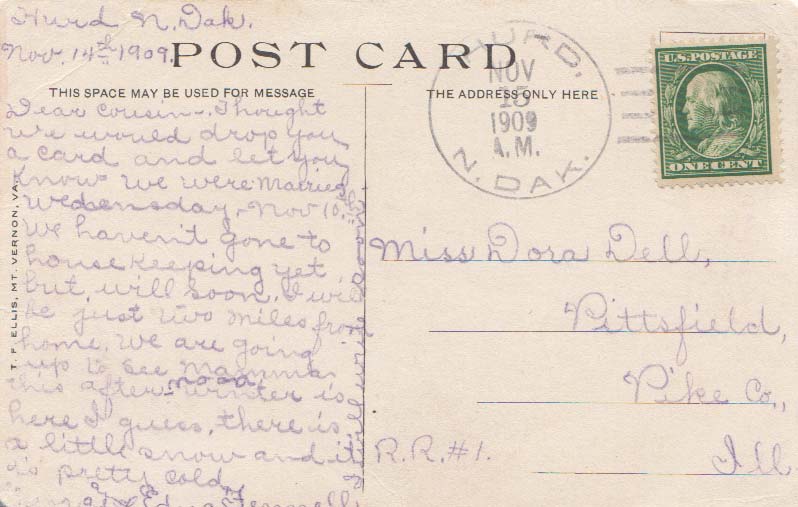 Hurd N. Dak.
Nov. 14th 1909.
POST CARD
THIS SPACE MAY BE USED FOR MESSAGE
Dear Cousin-. Thought
we would drop you
a card and let you
know we were married
Wedensday, Nov 10th
We haven't gone to
house keeping yet
but, will soon. I will
be just two miles from
home. We are going
up to see Mamma
this after-noon winter is
here I guess, there is
a little snow and it
is pretty cold.
& Edna
will write soon
T. F. ELLIS, MT. VERNON, VA.
THE ADDRESS ONLY HERE
HURD.
NOV
15
1909
A.M.
N. DAK.
U.S. POSTAGE
ONE CENT
Miss Dora Dell,
Pittsfield,
Pike Co.,
R.R.#1.
Ill